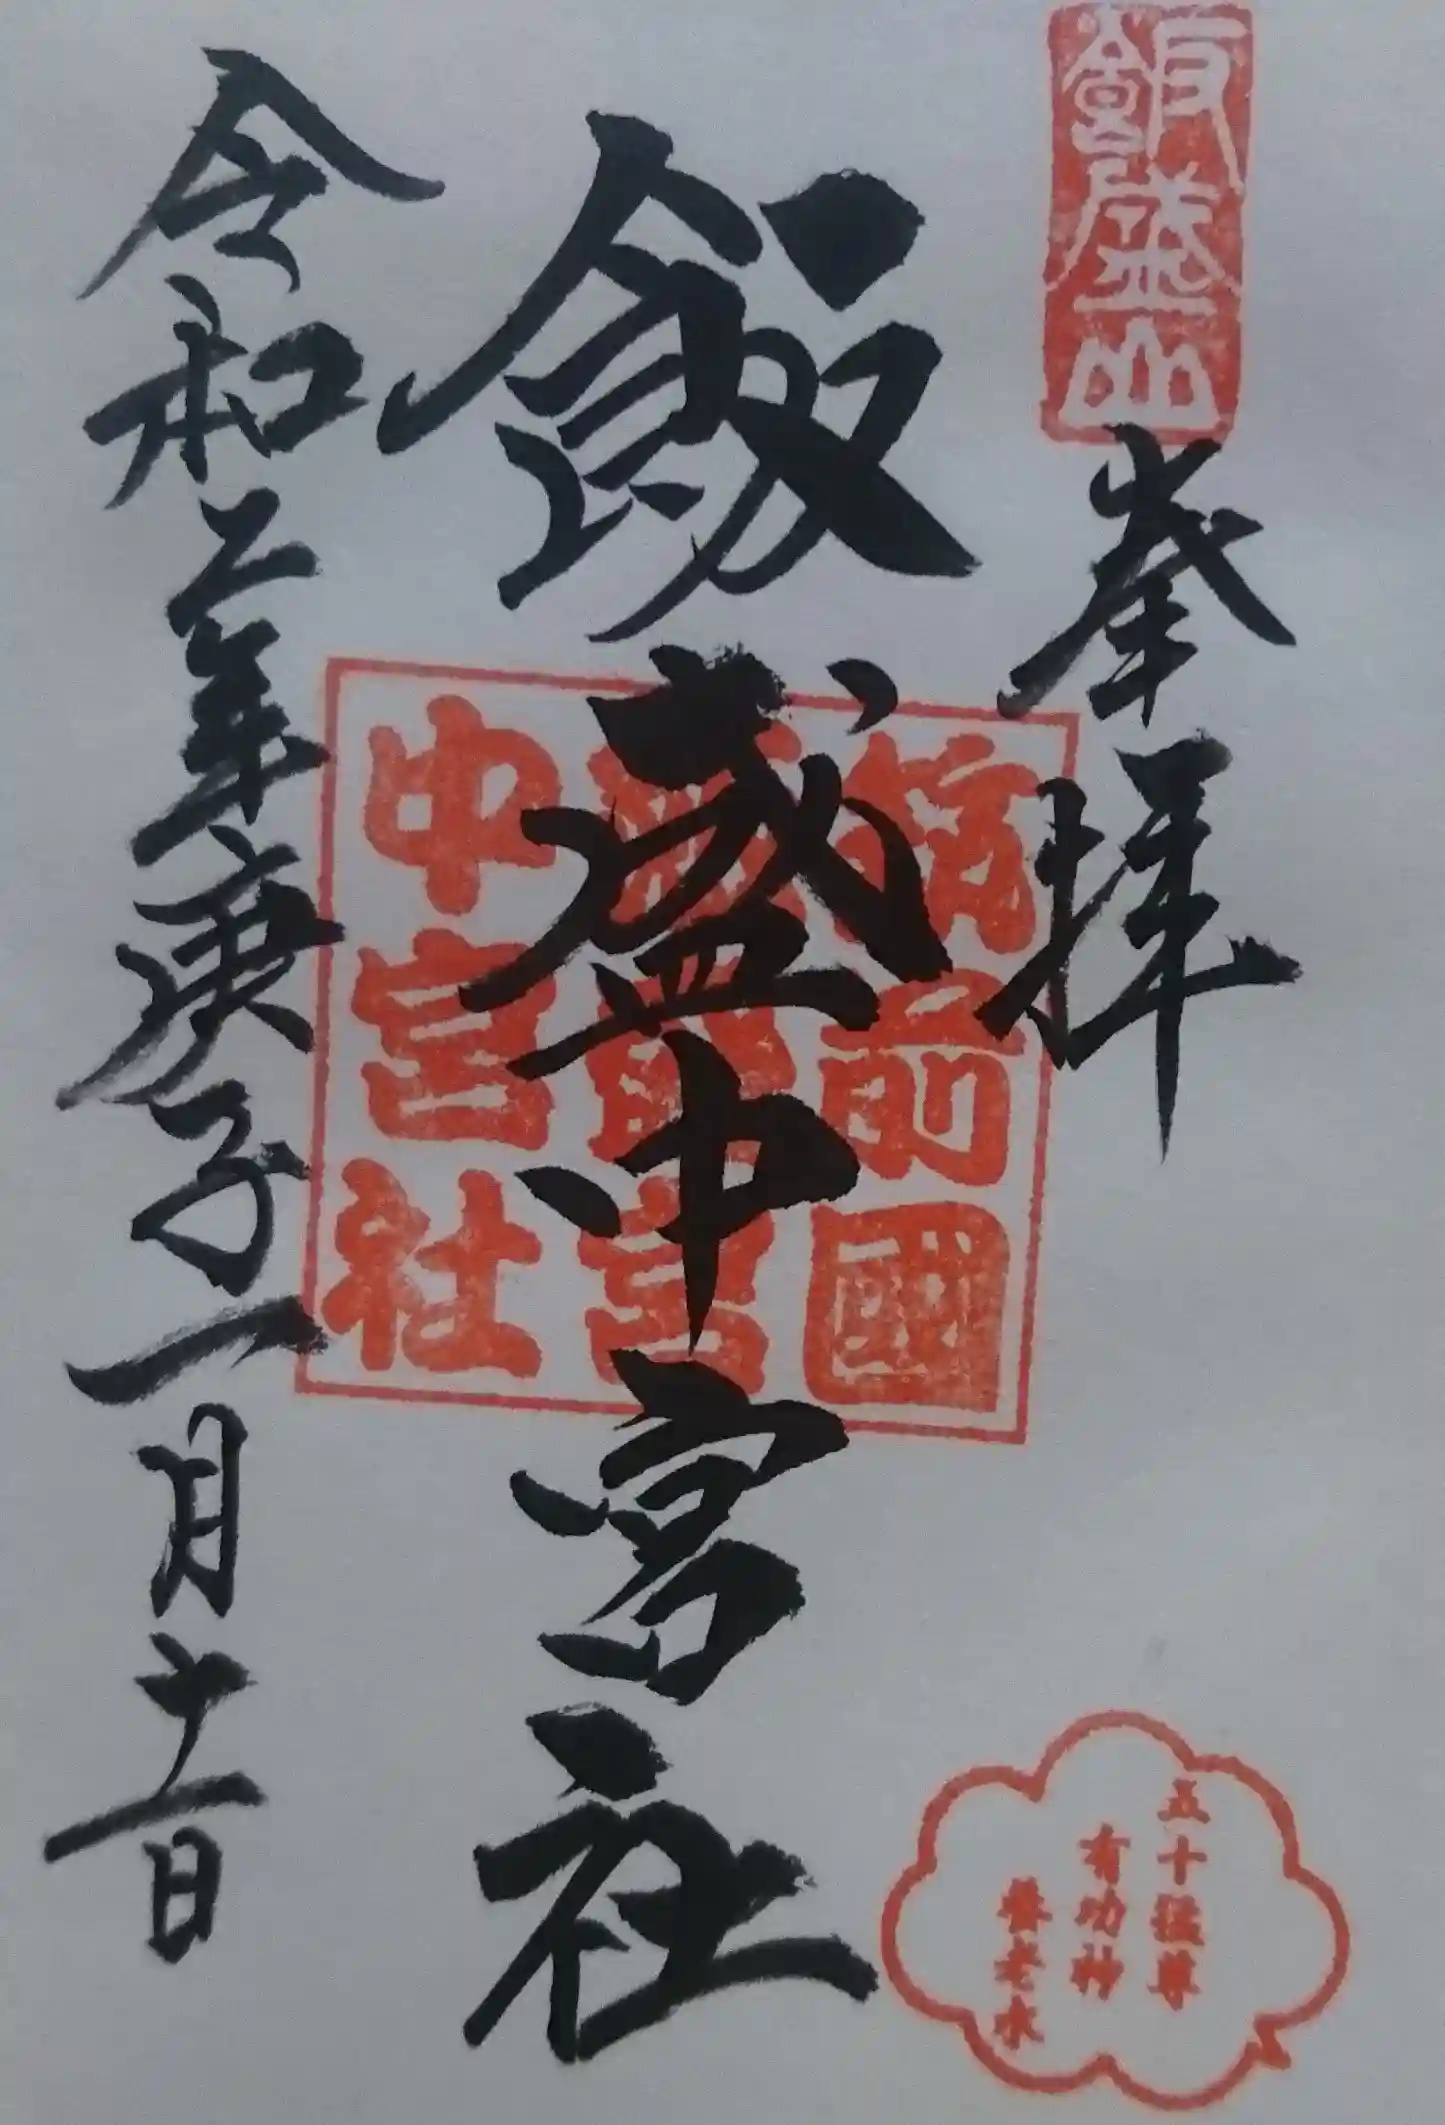 飯盛山
峯拝
飯盛中宮社
筑前國
飯盛宮
中宮社
令和二年庚子一月十一日
五十猛尊
有功神
養老水